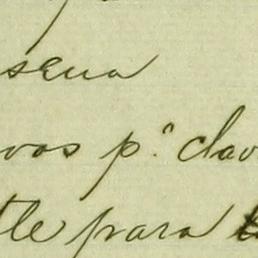 sena
vos p.ª clav
tle para